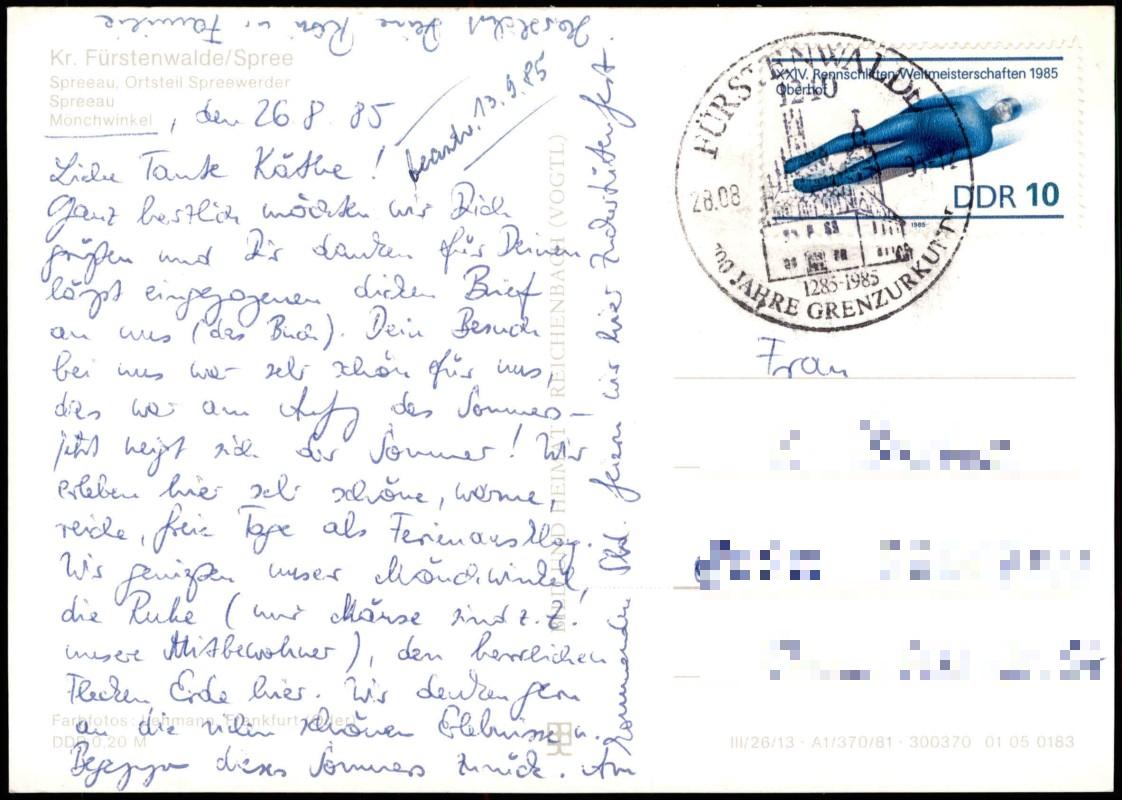 Kr. Fürstenwalde/Spree
Spreeau, Ortsteil Spreewerder
Spreeau
Mönchwinkel, den 26.8.85
beantw. 13.9.85
Liebe Tante Käthe!
Ganz herzlich möchten wir Dich
grüßen und Dir danken für Deinen
längst eingegangenen dicken Brief
an uns (das Buch). Dein Besuch
bei uns war sehr schön für uns,
dies war am Anfg des Sommers –
jetzt neigt sich der Sommer! Wir
erleben hier sehr schöne, warme,
reiche, freie Tage als Ferienausklang.
Wir genießen unser Mönchwinkel,
die Ruhe (nur Mäuse sind z.Z.
unsere Mitbewohner), den herrlichen
Flecken Erde hier. Wir denken gern
an die vielen schönen Erlebnisse u.
Begegngn dieses Sommers zurück. Am
kommenden Sbd. feiern wir hier Zuckertütenfest.
Herzlichst Deine u. Familie
Farbfotos: Lehmann, Frankfurt (Oder)
DDR 0,20 M
BILD UND HEIMAT REICHENBACH (VOGTL)
XXIV. Rennschlitten-Weltmeisterschaften 1985
Oberhof
DDR 10
1985
FÜRSTENWALDE
1240
28.08
1285-1985
700 JAHRE GRENZURKUNDE
Frau
III/26/13 · A1/370/81 · 300370 01 05 0183